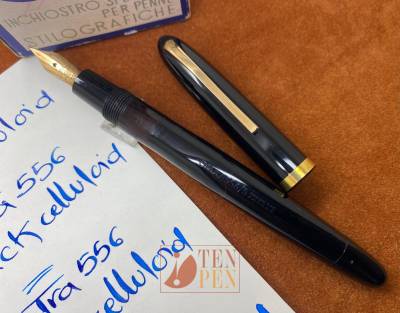 INCHIOSTRO
PER PENNE
STILOGRAFICHE
lluloid
556
ck celluloid
tra 556
celluloid
TEN
PEN